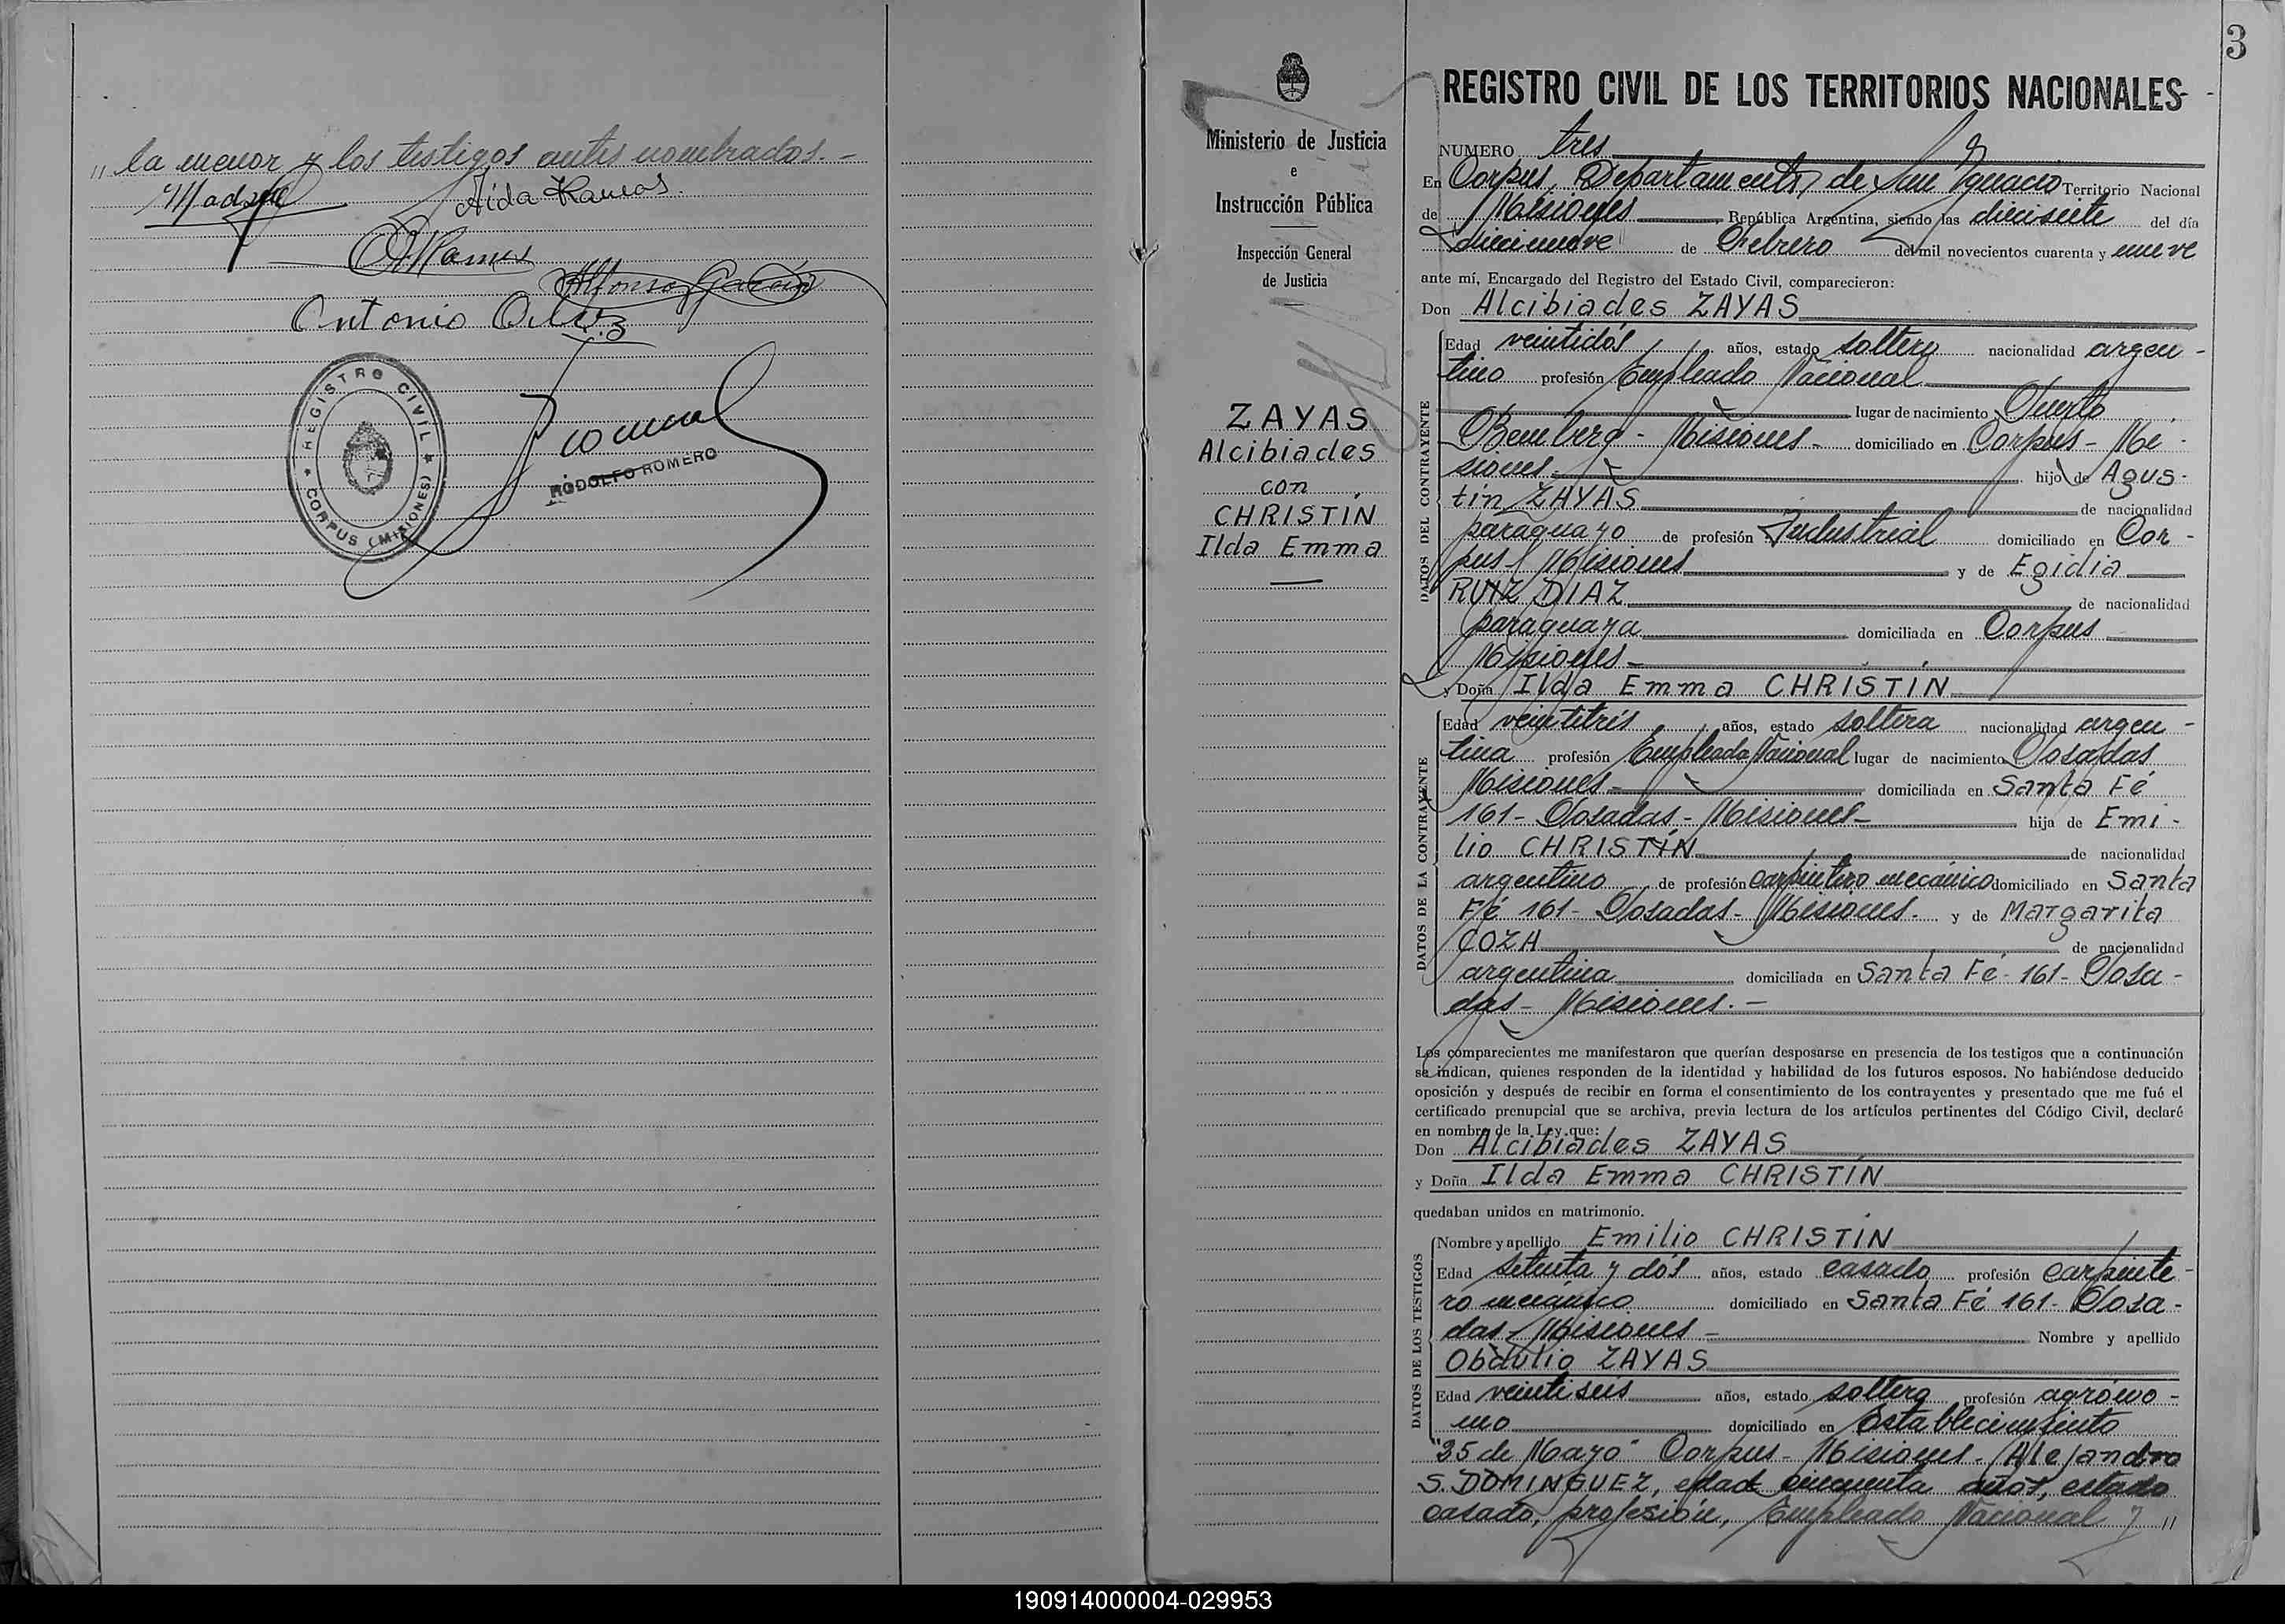 " la menor y los testigos antes nombrados.-
Aida Ramos.
Alfonso García
Antonio
REGISTRO CIVIL
CORPUS (MISIONES)
RODOLFO ROMERO
3
Ministerio de Justicia
e
Instrucción Pública
Inspección General
de Justicia
ZAYAS
Alcibiades
con
CHRISTÍN
Ilda Emma
REGISTRO CIVIL DE LOS TERRITORIOS NACIONALES
NUMERO tres
En Corpus, Departamento de San Ignacio Territorio Nacional
de Misiones República Argentina, siendo las diecisiete del día
diecinueve de Febrero del mil novecientos cuarenta y nueve
ante mí, Encargado del Registro del Estado Civil, comparecieron:
Don Alcibiades ZAYAS
DATOS DEL CONTRAYENTE
Edad veintidós años, estado soltero nacionalidad argen-
tino profesión Empleado Nacional
lugar de nacimiento Puerto
Bemberg - Misiones - domiciliado en Corpus - Mi-
siones - hijo de Agus-
tín ZAYAS de nacionalidad
paraguayo de profesión Industrial domiciliado en Cor-
pus - Misiones y de Egidia
RUIZ DIAZ de nacionalidad
paraguaya domiciliada en Corpus
Misiones -
y Doña Ilda Emma CHRISTÍN
DATOS DE LA CONTRAYENTE
Edad veintitrés años, estado soltera nacionalidad argen-
tina profesión Empleada Nacional lugar de nacimiento Posadas
Misiones - domiciliada en Santa Fé
161 - Posadas - Misiones - hija de Emi-
lio CHRISTÍN de nacionalidad
argentino de profesión carpintero mecánico domiciliado en Santa
Fé 161 - Posadas - Misiones. y de Margarita
COZA de nacionalidad
argentina domiciliada en Santa Fé - 161 - Posa-
das - Misiones. -
Los comparecientes me manifestaron que querían desposarse en presencia de los testigos que a continuación
se indican, quienes responden de la identidad y habilidad de los futuros esposos. No habiéndose deducido
oposición y después de recibir en forma el consentimiento de los contrayentes y presentado que me fué el
certificado prenupcial que se archiva, previa lectura de los artículos pertinentes del Código Civil, declaré
en nombre de la Ley que:
Don Alcibiades ZAYAS
y Doña Ilda Emma CHRISTÍN
quedaban unidos en matrimonio.
DATOS DE LOS TESTIGOS
Nombre y apellido Emilio CHRISTÍN
Edad setenta y dós años, estado casado profesión carpinte-
ro mecánico domiciliado en Santa Fé 161 - Posa-
das - Misiones - Nombre y apellido
Obdulio ZAYAS
Edad veintiseis años, estado soltero profesión agróno-
mo domiciliado en Establecimiento
"25 de Mayo" Corpus - Misiones. Alejandro
S. DOMINGUEZ, edad cincuenta años, estado
casado, profesión, Empleado Nacional y "
190914000004-029953